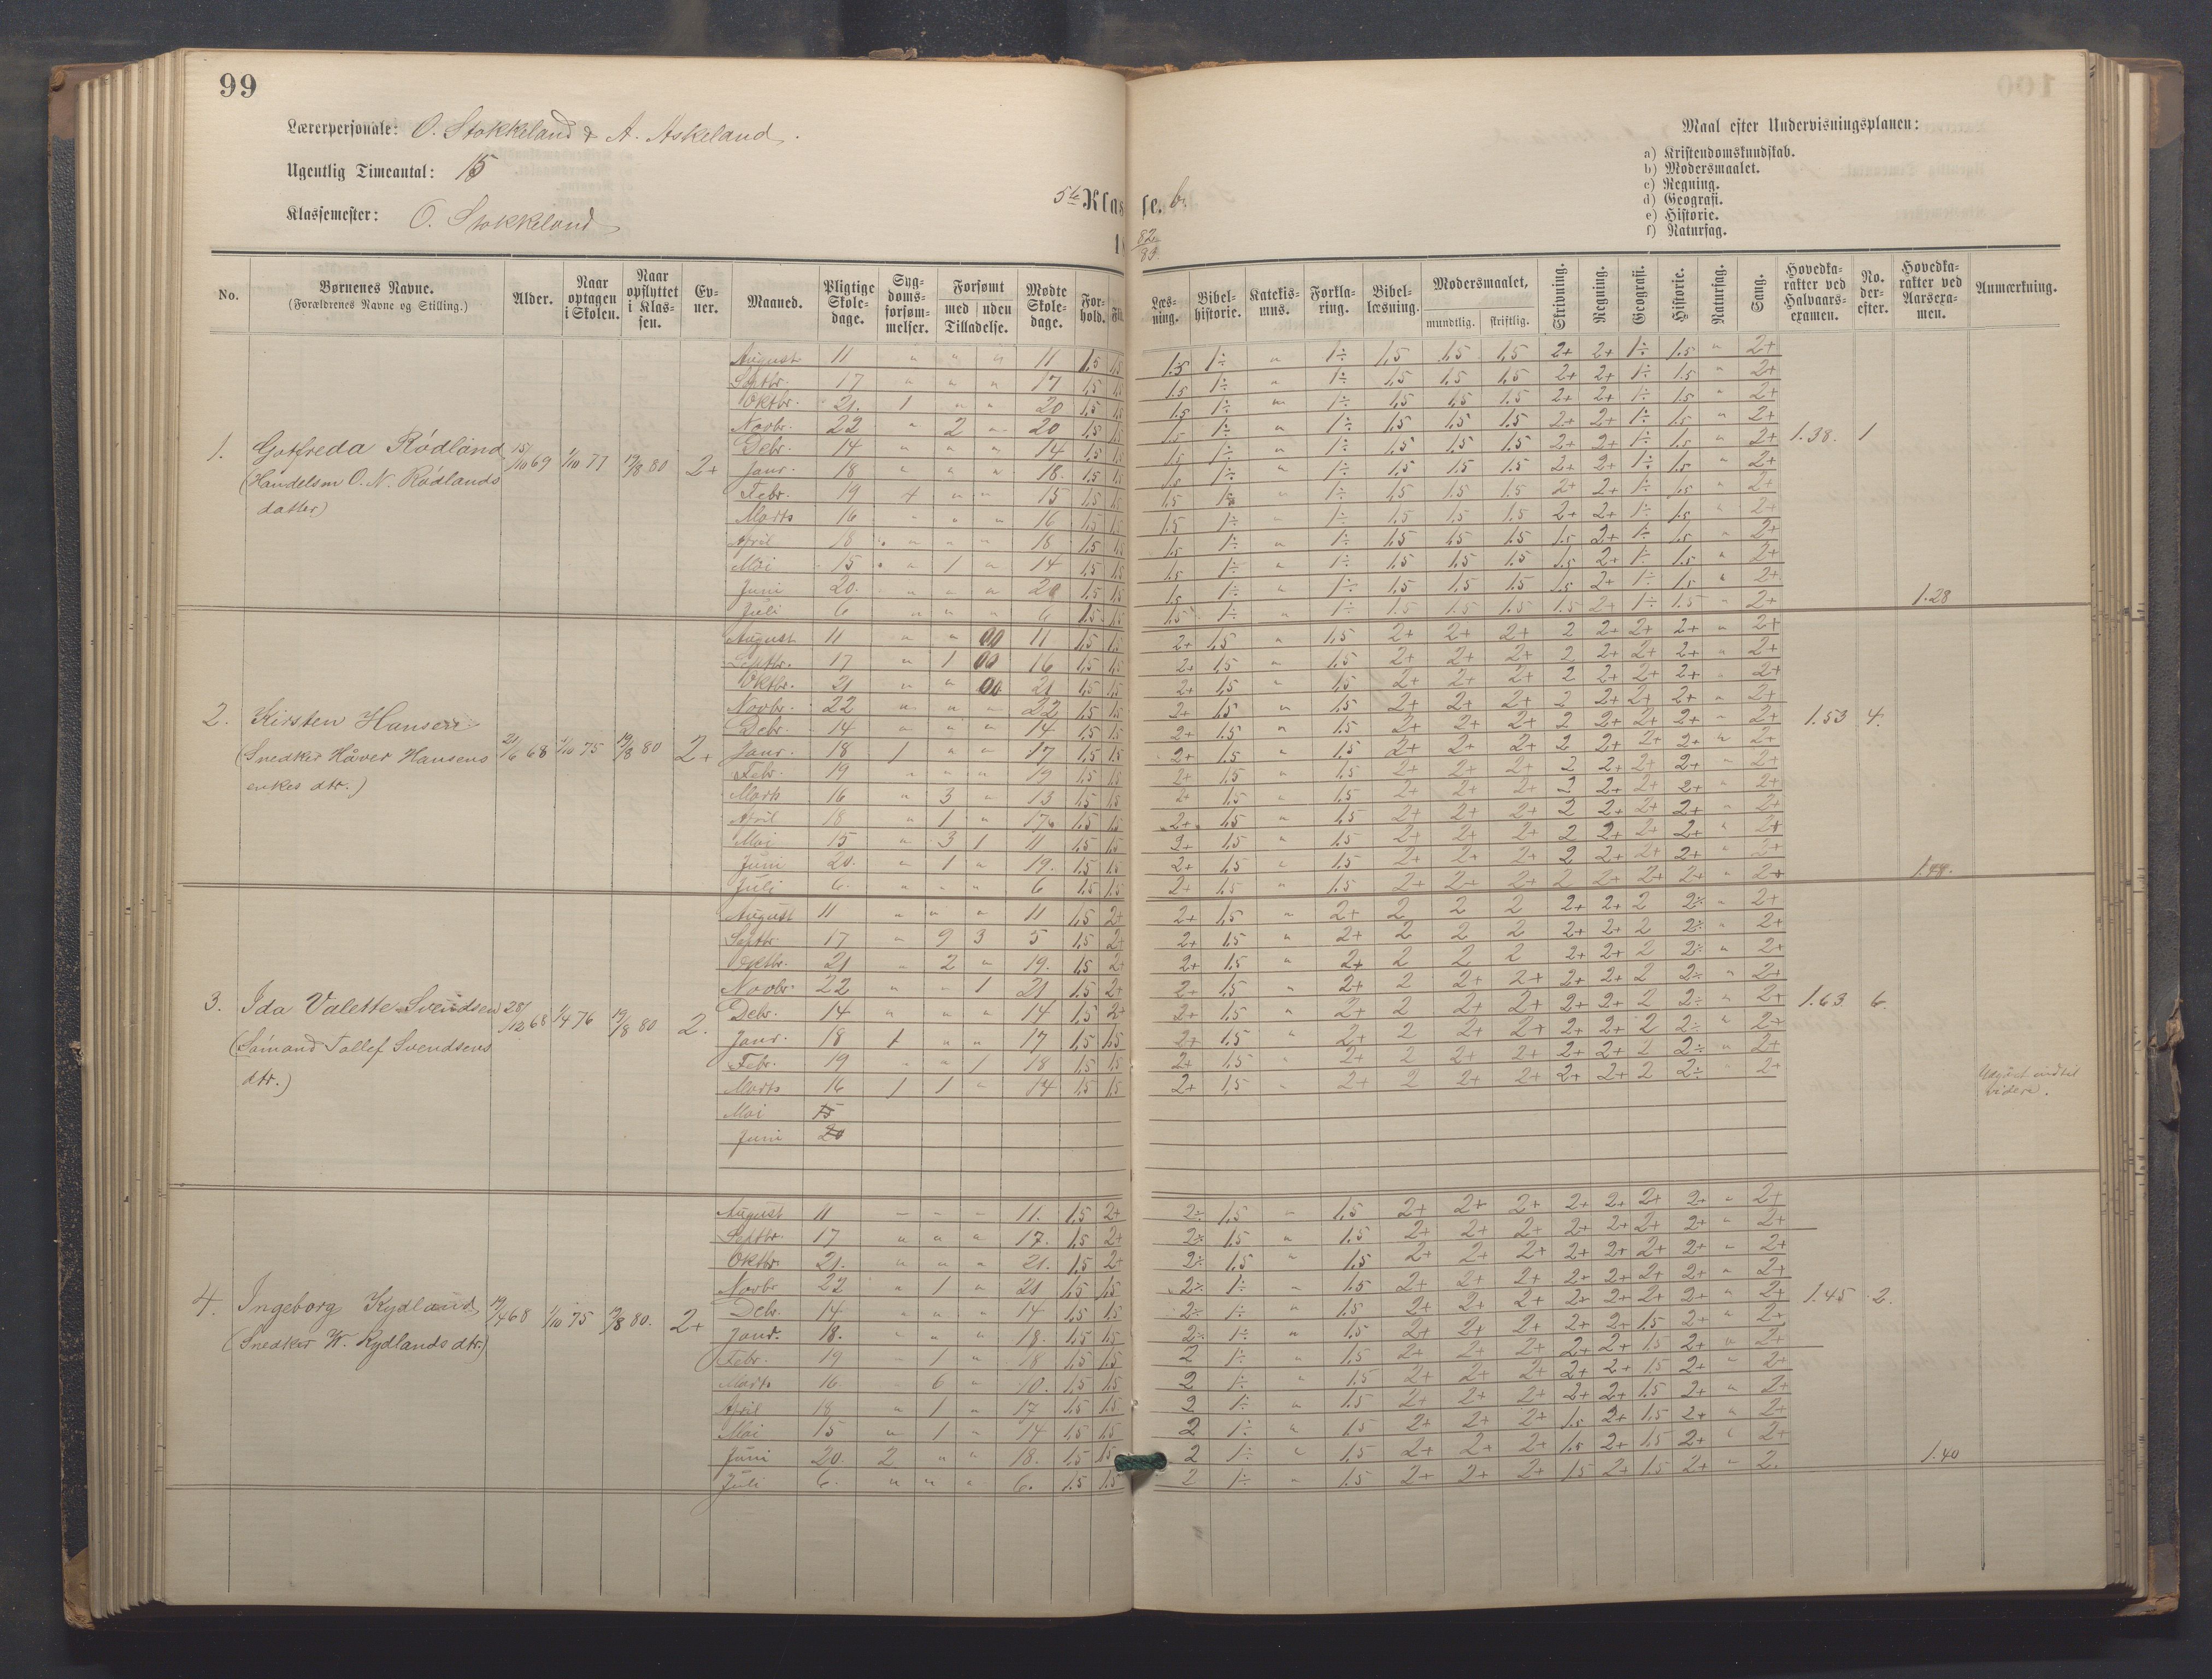 99
Lærerpersonale: O. Stokkeland & A. Askeland.
Ugentlig Timeantal: 15
Klassemester: O. Stokkeland
5te Klasse. b.
18 82/83
Maal efter Undervisningsplanen:
a) Kristendomskundskab.
b) Modersmaalet.
c) Regning.
d) Geografi.
e) Historie.
f) Naturfag.
No. Børnenes Navne. (Forældrenes Navne og Stilling.) Alder. Naar optagen i Skolen. Naar opflyttet i Klassen. Evner. Maaned. Pligtige Skoledage. Sygdomsforsømmelser. Forsømt med uden Tilladelse. Mødte Skoledage. Forhold. Læsning. Bibelhistorie. Katekismus. Forklaring. Bibellæsning. Modersmaalet, mundtlig. skriftlig. Skrivning. Regning. Geografi. Historie. Naturfag. Sang. Hovedkarakter ved Halvaarsexamen. No. derefter. Hovedkarakter ved Aarsexamen. Anmærkning.
1. Gotfreda Rødland 15/10 69 1/10 77 19/8 80 2+ 1.38. 1 1.28
(Handelsm O. N. Rødlands
datter)
August 11 " " " 11 1,5 1,5 1.5 1÷ " 1÷ 1,5 1,5 1,5 2+ 2+ 1÷ 1.5 " 2+
Septbr. 17 " " " 17 1,5 1,5 1.5 1÷ " 1÷ 1,5 1,5 1,5 2+ 2+ 1÷ 1.5 " 2+
Oktbr. 21. 1 " " 20 1,5 1,5 1.5 1÷ " 1÷ 1,5 1,5 1.5 2+ 2+ 1÷ 1.5 " 2+
Novbr. 22 " 2 " 20 1,5 1,5 1.5 1÷ " 1÷ 1,5 1,5 1.5 2+ 2+ 1÷ 1.5 " 2+
Debr. 14 " " " 14 1,5 1,5 1.5 1÷ " 1÷ 1,5 1,5 1.5 2+ 2+ 1÷ 1.5 " 2+
Janr. 18 " " " 18. 1,5 1,5 1.5 1÷ " 1÷ 1,5 1.5 1.5 2+ 2+ 1÷ 1.5 " 2+
Febr. 19 4 " " 15 1,5 1,5 1,5 " 1÷ 1,5 1,5 1.5 2+ 2+ 1÷ 1.5 " 2+
Marts 16 " " " 16 1,5 1,5 1.5 1÷ " 1÷ 1,5 1,5 1.5 2+ 2+ 1÷ 1.5 " 2+
April 18 " " " 18 1,5 1,5 1.5 1÷ " 1÷ 1,5 1.5 1.5 1.5 2+ 1÷ 1.5 " 2+
Mai 15 " 1 " 14 1,5 1,5 1.5 1÷ " 1÷ 1.5 1.5 1.5 1.5 2+ 1÷ 1.5 " 2+
Juni 20. " " " 20 1,5 1,5 1.5 1÷ " 1÷ 1,5 1.5 1.5 1.5 2+ 1÷ 1.5 " 2+
Juli 6 " " " 6 1.5 1,5 1.5 1÷ " 1÷ 1.5 1.5 1.5 1.5 2+ 1÷ 1.5 " 2+
2. Kirsten Hansen 21/6 68 1/10 75 19/8 80 2+ 1.53 4.
(Snedker Håver Hansens
enkes dtr.)
August 11 " " 11 1,5 1,5 2+ 1,5 " 1,5 2+ 2+ 2+ 2 2+ 2+ 2+ " 2+
Septbr. 17 " 1 16 1,5 1,5 2+ 1,5 " 1,5 2+ 2+ 2+ 2 2+ 2+ 2+ " 2+
Oktbr. 21 " " 21 1,5 1,5 2+ 1,5 " 1,5 2+ 2+ 2+ 2 2+ 2+ 2+ " 2+
Novbr. 22 " " " 22 1,5 1,5 2+ 1,5 " 1,5 2+ 2+ 2+ 2 2+ 2+ 2+ " 2+
Debr. 14 " " " 14 1,5 1,5 2+ 1,5 " 1,5 2+ 2+ 2+ 2 2+ 2+ 2+ " 2+
Janr. 18 1 " " 17 1,5 1,5 2+ 1,5 " 1,5 2+ 2+ 2+ 2 2+ 2+ 2+ " 2+
Febr. 19 " " " 19 1,5 1,5 2+ 1,5 " 1,5 2+ 2+ 2+ 2 2+ 2+ 2+ " 2+
Marts 16 " 3 " 13 1,5 1,5 2+ 1,5 " 1,5 2+ 2+ 2+ 2 2+ 2+ 2+ " 2+
April 18 " 1 " 1,5 1,5 2+ 1,5 " 1,5 2+ 2+ 2+ 2 2+ 2+ 2+ " 2+
Mai 15 " 3 1 11 1,5 1,5 2+ 1,5 " 1,5 2+ 2+ 2+ 2 2+ 2+ 2+ " 2+
Juni 20. " 1 " 19. 1,5 1,5 2+ 1,5 " 1.5 2+ 2+ 2+ 2 2+ 2+ 2+ " 2+
Juli 6. " " " 6 1.5 1.5 2+ 1.5 " 1.5 2+ 2+ 2+ 2 2+ 2+ 2+ " 2+
3. Ida Valette Svendsen 28/12 68 1/4 76 19/8 80 2. 1.63 6.
(Sømand Tollef Svendsens
dtr.)
August 11 " " " 11 1,5 2+ 2+ 1,5 " 2+ 2 2 2 2+ 2+ 2 2÷ " 2+
Septbr. 17 " 9 3 5 1,5 2+ 2+ 1.5 " 2+ 2 2 2 2+ 2+ 2 2÷ " 2+
Oktbr. 21 " 2 " 19. 1.5 2+ 2+ 1,5 " 2+ 2 2 2 2+ 2+ 2 2÷ " 2+
Novbr. 22 " " 1 21 1.5 2+ 2+ 1,5 " 2+ 2 2+ 2+ 2+ 2+ 2 2÷ " 2+
Debr. 14 " " " 14 1,5 2+ 2+ 1,5 " 2+ 2 2+ 2+ 2+ 2+ 2 2÷ " 2+
Janr. 18 1 " " 17 1,5 1,5 2+ 1.5 " 2+ 2 2+ 2+ 2+ 2+ 2 2÷ " 2+
Febr. 19 " " 1 18 1.5 1.5 2+ 1,5 " 2+ 2 2+ 2+ 2+ 2+ 2 2÷ " 2+
Marts 16 1 1 " 14 1,5 1,5 2+ 1,5 " 2+ 2 2+ 2+ 2+ 2+ 2 2÷ " 2+
Udgået indtil
videre.
Mai 15
Juni 20
4. Ingeborg Kydland 19/4 68 1/10 75 19/8 80. 2+ 1.45 2. 1.40
(Snedker W. Kydlands dtr.)
August 11 - - - 11. 1,5 2+ 2÷ 1,5 " 1,5 2+ 2+ 2+ 2+ 2+ 2+ 2+ " 2+
Septbr. 17 " " " 17. 1,5 2+ 2÷ 1,5 " 1.5 2+ 2+ 2+ 2+ 2+ 2+ 2+ " 2+
Oktbr. 21. " " " 21. 1,5 2+ 2÷ 1,5 " 1,5 2+ 2+ 2+ 2+ 2+ 2+ 2+ " 2+
Novbr 22 " 1 " 21 1,5 1,5 2÷ 1÷ " 1.5 2+ 2+ 2+ 2+ 2+ 2+ 2+ " 2+
Debr. 14 " " " 14 1,5 1,5 2÷ 1÷ " 1,5 2+ 2+ 2+ 2+ 2+ 2+ 2+ " 2+
Janr. 18. " " " 18. 1.5 1.5 2÷ 1÷ " 1.5 2+ 2+ 2+ 2+ 2+ 1.5 2+ " 2+
Febr. 19 " 1 " 18 1,5 1.5 2 1÷ " 1.5 2+ 2+ 2+ 2+ 2+ 1.5 2+ " 2+
Marts 16 6 " 10. 1,5 1.5 2 1÷ " 1.5 2+ 2+ 2+ 2+ 2+ 1.5 2+ " 2+
April 18 " 1 " 17 1.5 1.5 2 1÷ " 1.5 2+ 2+ 2+ 2+ 2+ 1.5 2+ " 2+
Mai 15 " 1 " 14 1.5 1.5 2 1÷ " 1.5 2+ 2+ 2+ 1.5 2+ 1.5 2+ " 2+
Juni 20. 2 " " 18. 1.5 1.5 2 1÷ " 1.5 2+ 2+ 2+ 1.5 2+ 1.5 2+ " 2+
Juli 6. " " " 6. 1.5 1.5 2 1÷ " 1.5 2+ 2+ 2+ 1.5 2+ 1.5 2+ " 2.